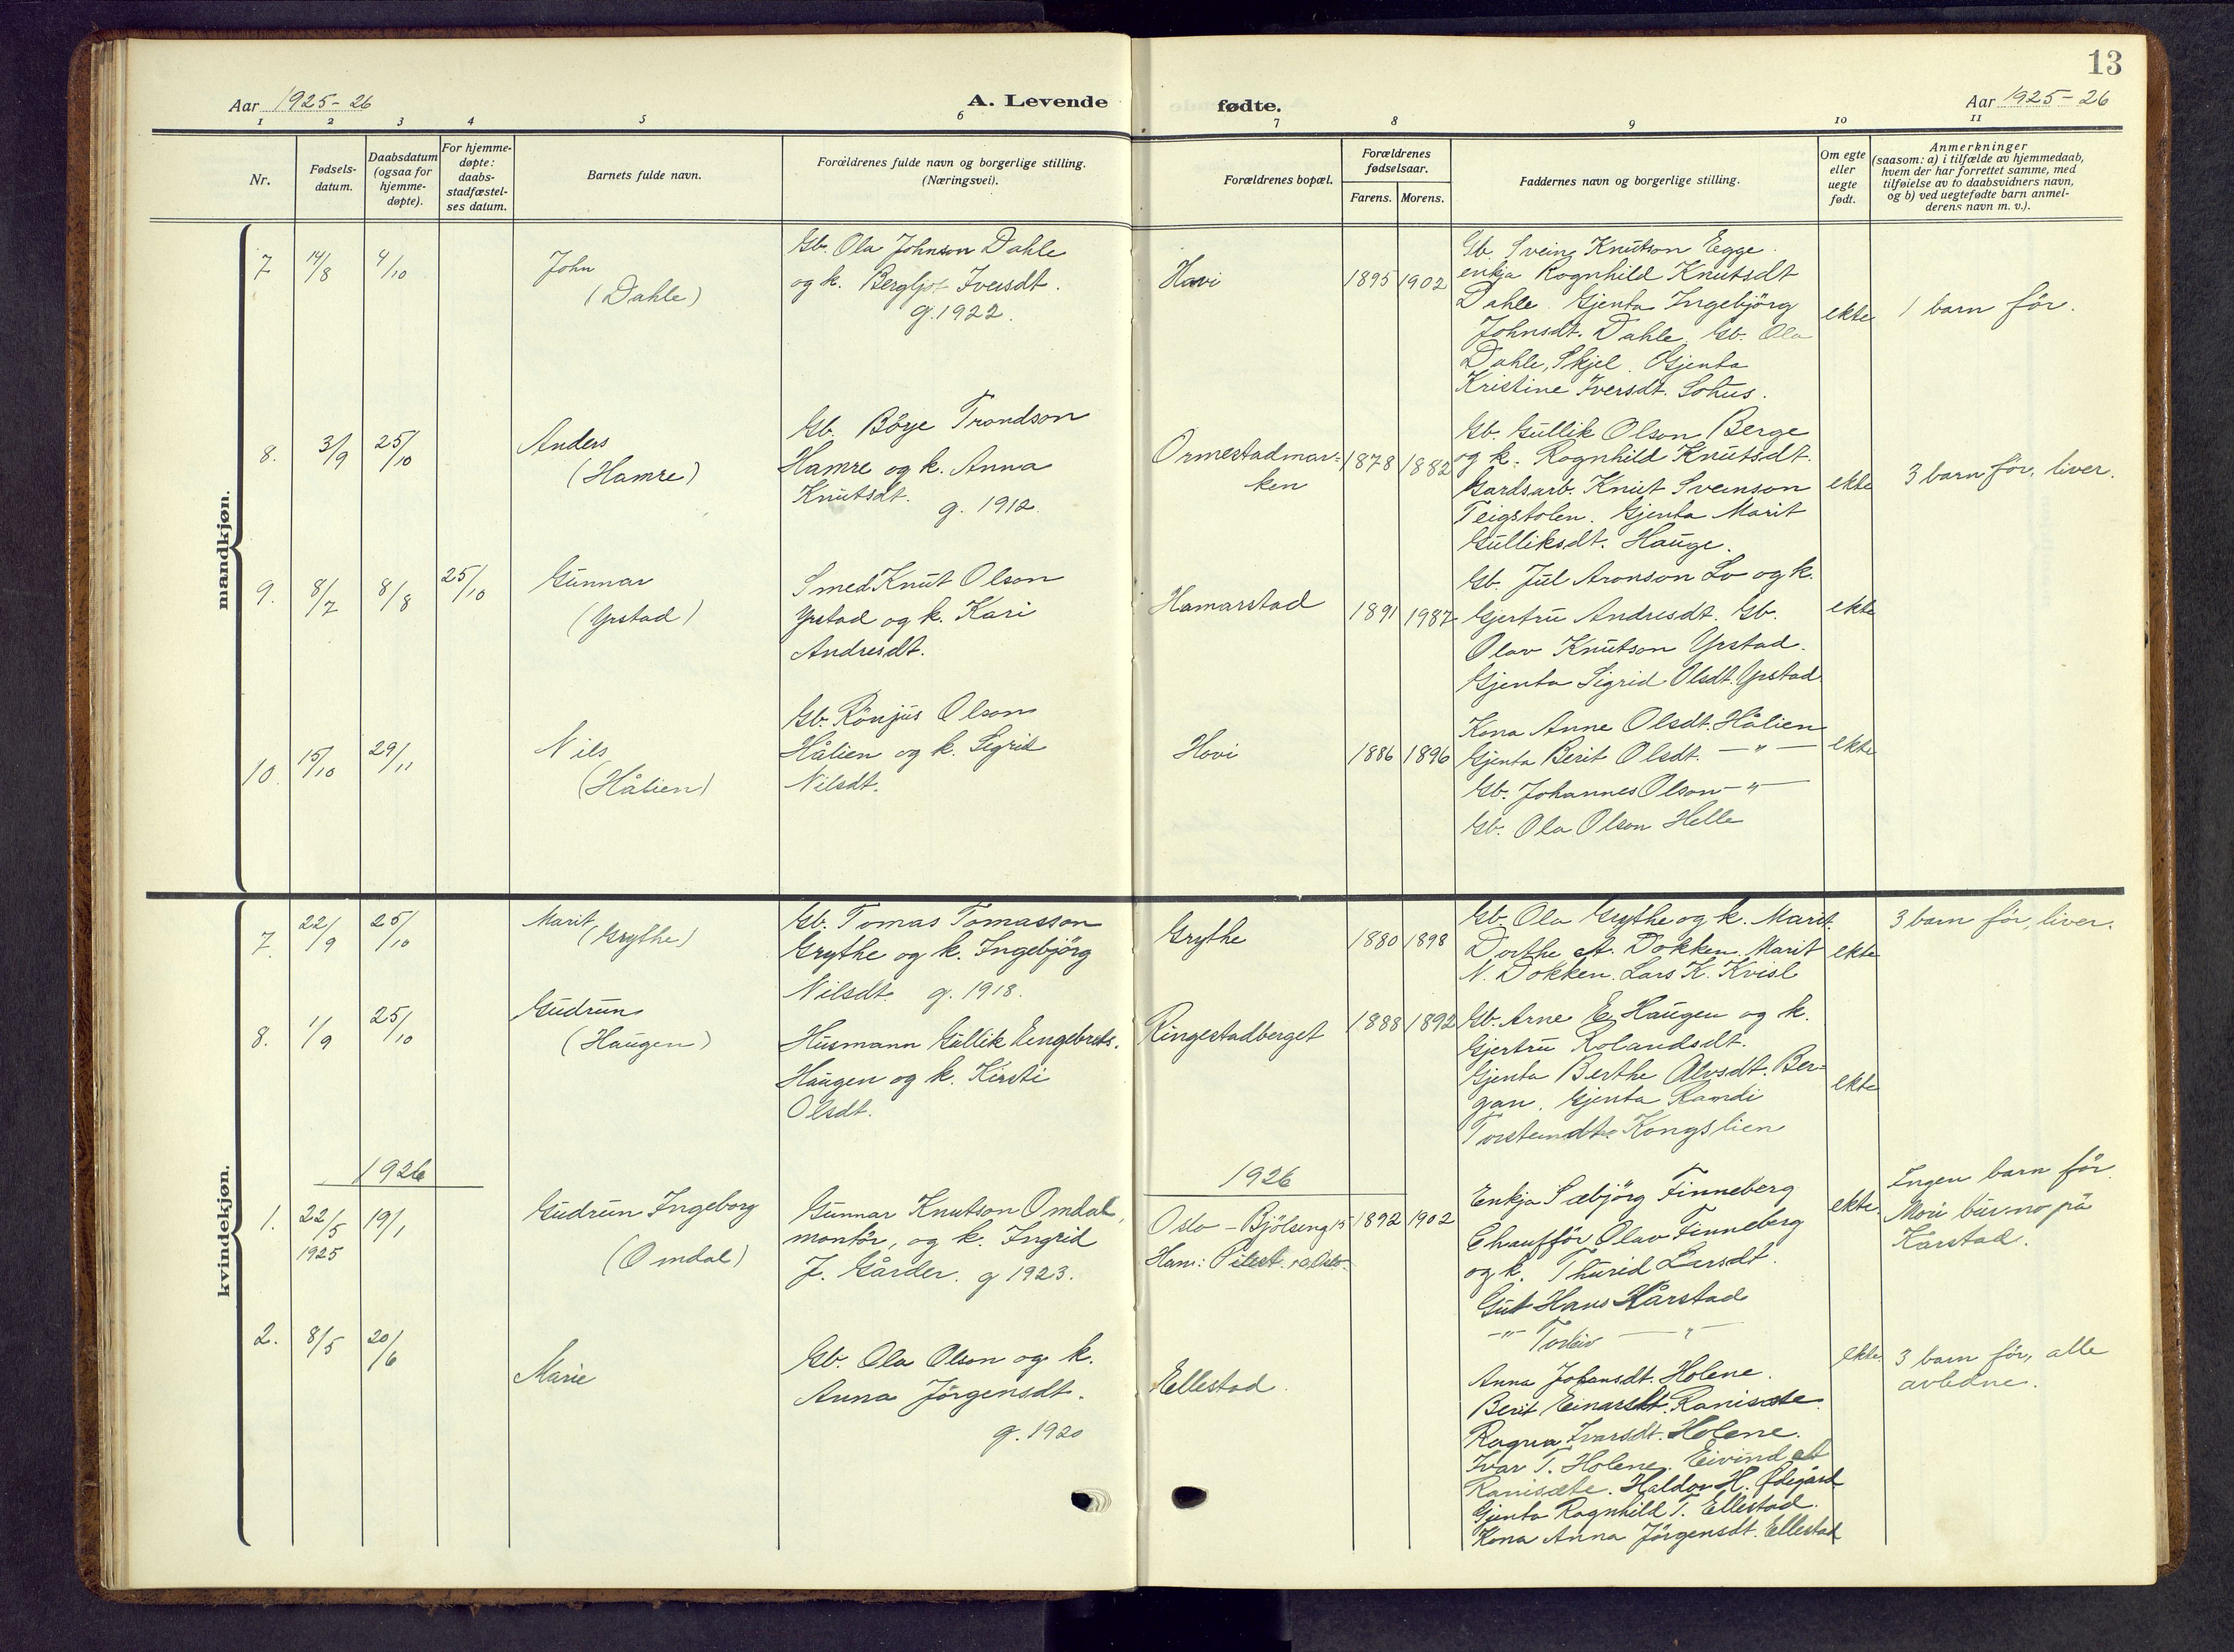 13
Aar 1925-26
A. Levende
fødte.
Aar 1925-26
1 2 3 4 5 6 7 8 9 10 11
Nr.
Fødsels-
datum.
Daabsdatum
(ogsaa for
hjemme-
døpte).
For hjemme-
døpte:
daabs-
stadfæstel-
ses datum.
Barnets fulde navn.
Forældrenes fulde navn og borgerlige stilling.
(Næringsvei).
Forældrenes bopæl.
Forældrenes
fødselsaar.
Farens. Morens.
Faddernes navn og borgerlige stilling.
Om egte
eller
uegte
født.
Anmerkninger
(saasom: a) i tilfælde av hjemmedaab,
hvem der har forrettet samme, med
tilføielse av to daabsvidners navn,
og b) ved uegtefødte barn anmel-
derens navn m. v.).
mandkjøn.
7 14/8 4/10
John
(Dahle)
Gb. Ola Johnson Dahle
og k. Bergljot Iversdt.
g. 1922.
Hovi
1895 1902
Gb. Svein Knutson Egge.
enkja Rognhild Knutsdt
Dahle. Gjenta Ingebjörg
Johnsdt. Dahle. Gb. Ola
Dahle, Skjel. Gjenta
Kristine Iversdt. Lohus.
ekte
1 barn för.
8. 3/9 25/10
Anders
(Hamre)
Gb. Böye Trondson
Hamre og k. Anna
Knutsdt. g. 1912.
Ormestadmar-
ken
1878 1882
Gb. Gullik Olson Berge
og k. Rognhild Knutsdt.
Gardsarb. Knut Sveinson
Teigstolen. Gjenta Marit
Gulliksdt. Hauge.
ekte
3 barn för, liver.
9. 8/7 8/8 25/10
Gunnar
(Yrstad)
Smed Knut Olson
Yrstad og k. Kari
Andresdt.
Hamarstad
1891 1987
Gb. Jul Aronson Lo og k.
Gjertru Andresdt. Gb.
Olav Knutson Yrstad.
Gjenta Sigrid Olsdt. Yrstad
ekte
10. 15/10 29/11
Nils
(Hålien)
Gb. Rönjus Olson
Hålien og k. Sigrid
Nilsdt.
Hovi
1886 1896
Kona Anne Olsdt. Hålien
Gjenta Berit Olsdt. — " —
Gb. Johannes Olson — " —
Gb. Ola Olson Helle
ekte
kvindekjøn.
7. 22/9 25/10
Marit
(Grythe)
Gb. Tomas Tomasson
Grythe og k. Ingebjörg
Nilsdt. g. 1918.
Grythe
1880 1898
Gb. Ola Grythe og k. Marit.
Dorthe A. Dokken. Marit
N. Dokken. Lars K. Kvisl
ekte
3 barn för, liver.
8. 1/9 25/10
Gudrun
(Haugen)
Husmann Gullik Engebrets.
Haugen og k. Kirsti
Olsdt.
Ringestadberget
1888 1892
Gb. Arne E. Haugen og k.
Gjertru Rolandsdt.
Gjenta Berthe Alvsdt. Ber-
gan. Gjenta Ramdi
Torsteindt. Kongslien
ekte
1926
1926
1. 22/5 19/1
1925
Gudrun Ingeborg
(Omdal)
Gunnar Knutson Omdal,
montör, og k. Ingrid
J. Gårder. g 1923.
Oslo - Bjölseng 15
Ham: Oslo
1892 1902
Enkja Sæbjörg Finneberg
Chafför Olav Finneberg
og k. Thurid Larsdt.
Gut Hans Kårstad
— " — Torleiv — " —
ekte.
Ingen barn för.
Mori bur no på
Kårstad.
2. 8/5 20/6
Marie
Gb. Ola Olson og k.
Anna Jörgensdt.
g. 1920
Ellestad.
Anna Johansdt. Holene.
Berit Einarsdt. Ranisæte.
Ragna Ivarsdt. Holene.
Ivar T. Holene. Eivind A
Ranisæte. Haldor H. Ødegård
Gjenta Ragnhild T. Ellestad.
Kona Anna Jörgensdt. Ellestad
ekte.
3 barn för, alle
avledne.